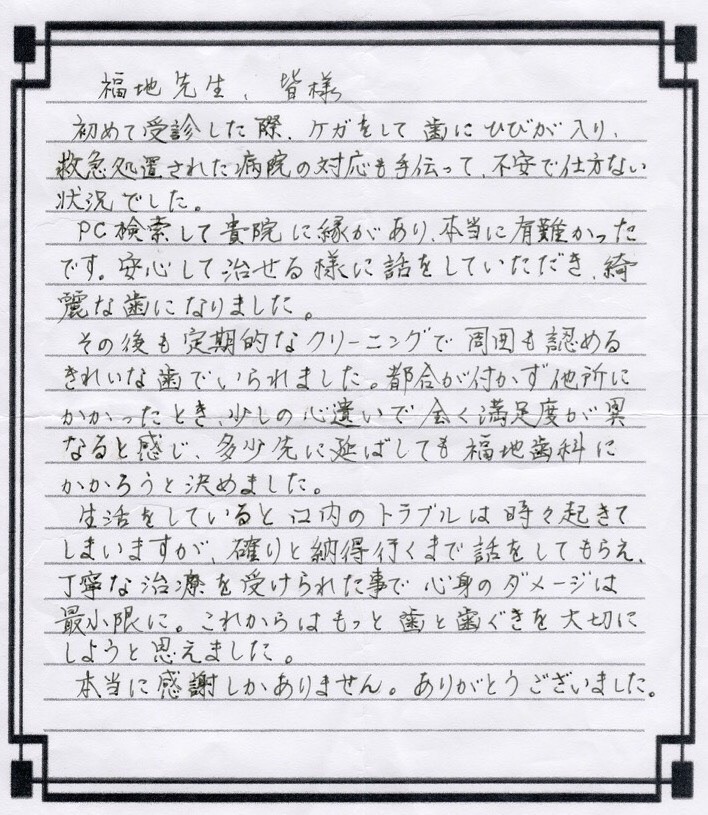 福地先生、皆様
初めて受診した際、ケガをして歯にひびが入り、
救急処置された病院の対応も手伝って、不安で仕方ない
状況でした。
PC検索して貴院に縁があり、本当に有難かった
です。安心して治せる様に話をしていただき、綺
麗な歯になりました。
その後も定期的なクリーニングで周囲も認める
きれいな歯でいられました。都合が付かず他所に
かかったとき、少しの心遣いで全く満足度が異
なると感じ、多少先に延ばしても福地歯科に
かかろうと決めました。
生活をしていると口内のトラブルは時々起きて
しまいますが、確りと納得行くまで話をしてもらえ、
丁寧な治療を受けられた事で心身のダメージは
最小限に。これからはもっと歯と歯ぐきを大切に
しようと思えました。
本当に感謝しかありません。ありがとうございました。